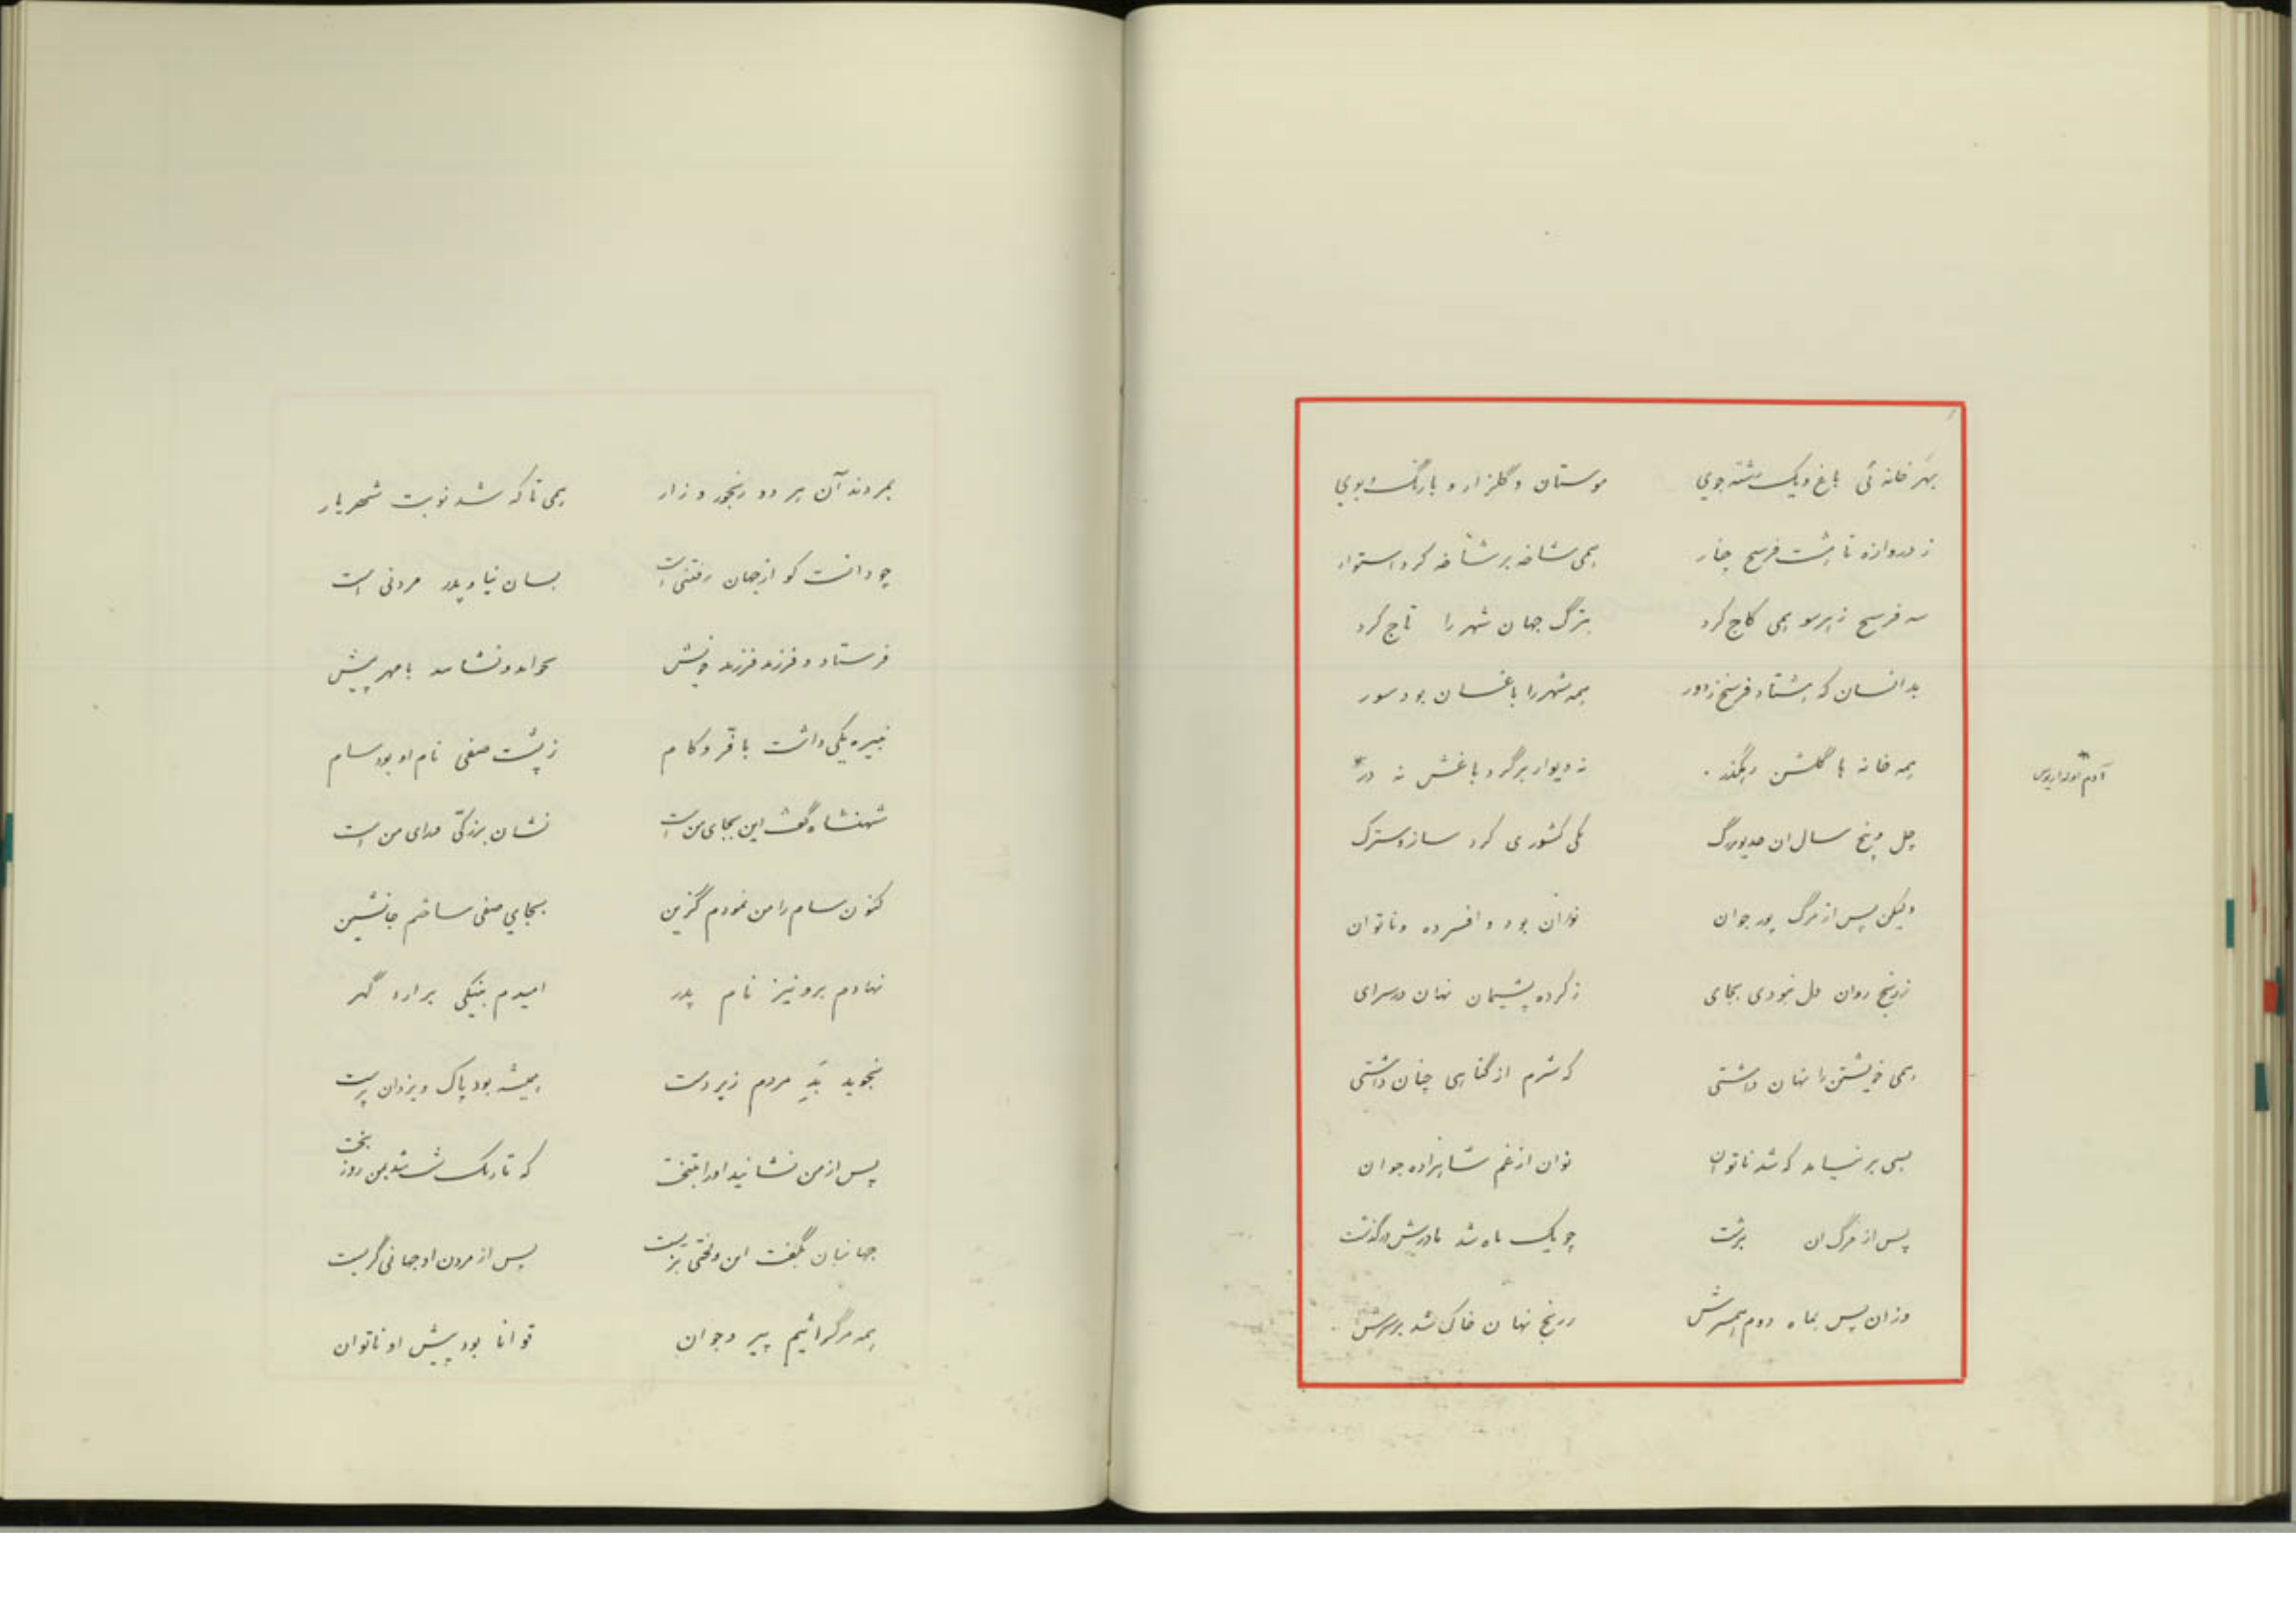 بهر خانه ئی باغ و یک رشته جوی موستان و گلزار و با رنگ و بوی
ز دروازه تا هشت فرسخ چنار همی شاخه بر شاخه کرد استوار
سه فرسخ زهر سو همی کاج کرد بزرگ جهان شهر را تاج کرد
بدانسان که هشتاد فرسخ ز دور همه شهر را باغسان بود سور
همه خانه ها گلشن رهگذر نه دیوار بر گرد باغش نه در
آدم اولداریوس
چل و پنج سال آن خدیو بزرگ کی کشوری کرد ساز و سترگ
ولیکن پس از مرگ پور جوان نوان بود و افسرده و ناتوان
ز رنج روان دل نبودی بجای ز کرده پشیمان نهان در سرای
همی خویشتن را نهان داشتی که شرم از گناهی چنان داشتی
بسی بر نیامد که شد ناتوان نوان از غم شاهزاده جوان
پس از مرگ آن برشت چو یک ماه شد مادرش درگذشت
وزان پس بماه دوم همسرش ز رنج نهان خاک شد بر سرش
بمردند آن هر دو رنجور و زار همی تا که شد نوبت شهریار
چو دانست کو از جهان رفتنی است بسان نیا و پدر مردنی است
فرستاد و فرزند فرزند خویش بخواند و نشاند با مهر پیش
نبیره یکی داشت با فرّ و کام ز پشت صفی نام او بود سام
شهنشاه گفت این بجای من است نشان بزرگی خدای من است
کنون سام را من نمودم گزین بجای صفی ساختم جانشین
نهادم برو نیز نام پدر امیدم بنیکی برارد گهر
نجوید بَدِ مردم زیر دست همیشه بود پاک و یزدان پرست
پس از من نشانید او را بتخت که تاریک شد بمن روز بخت
جهانبان بگفت این و لختی بزیست پس از مردن او جهانی گریست
همه مرگرائیم پیر و جوان توانا بود پیش او ناتوان